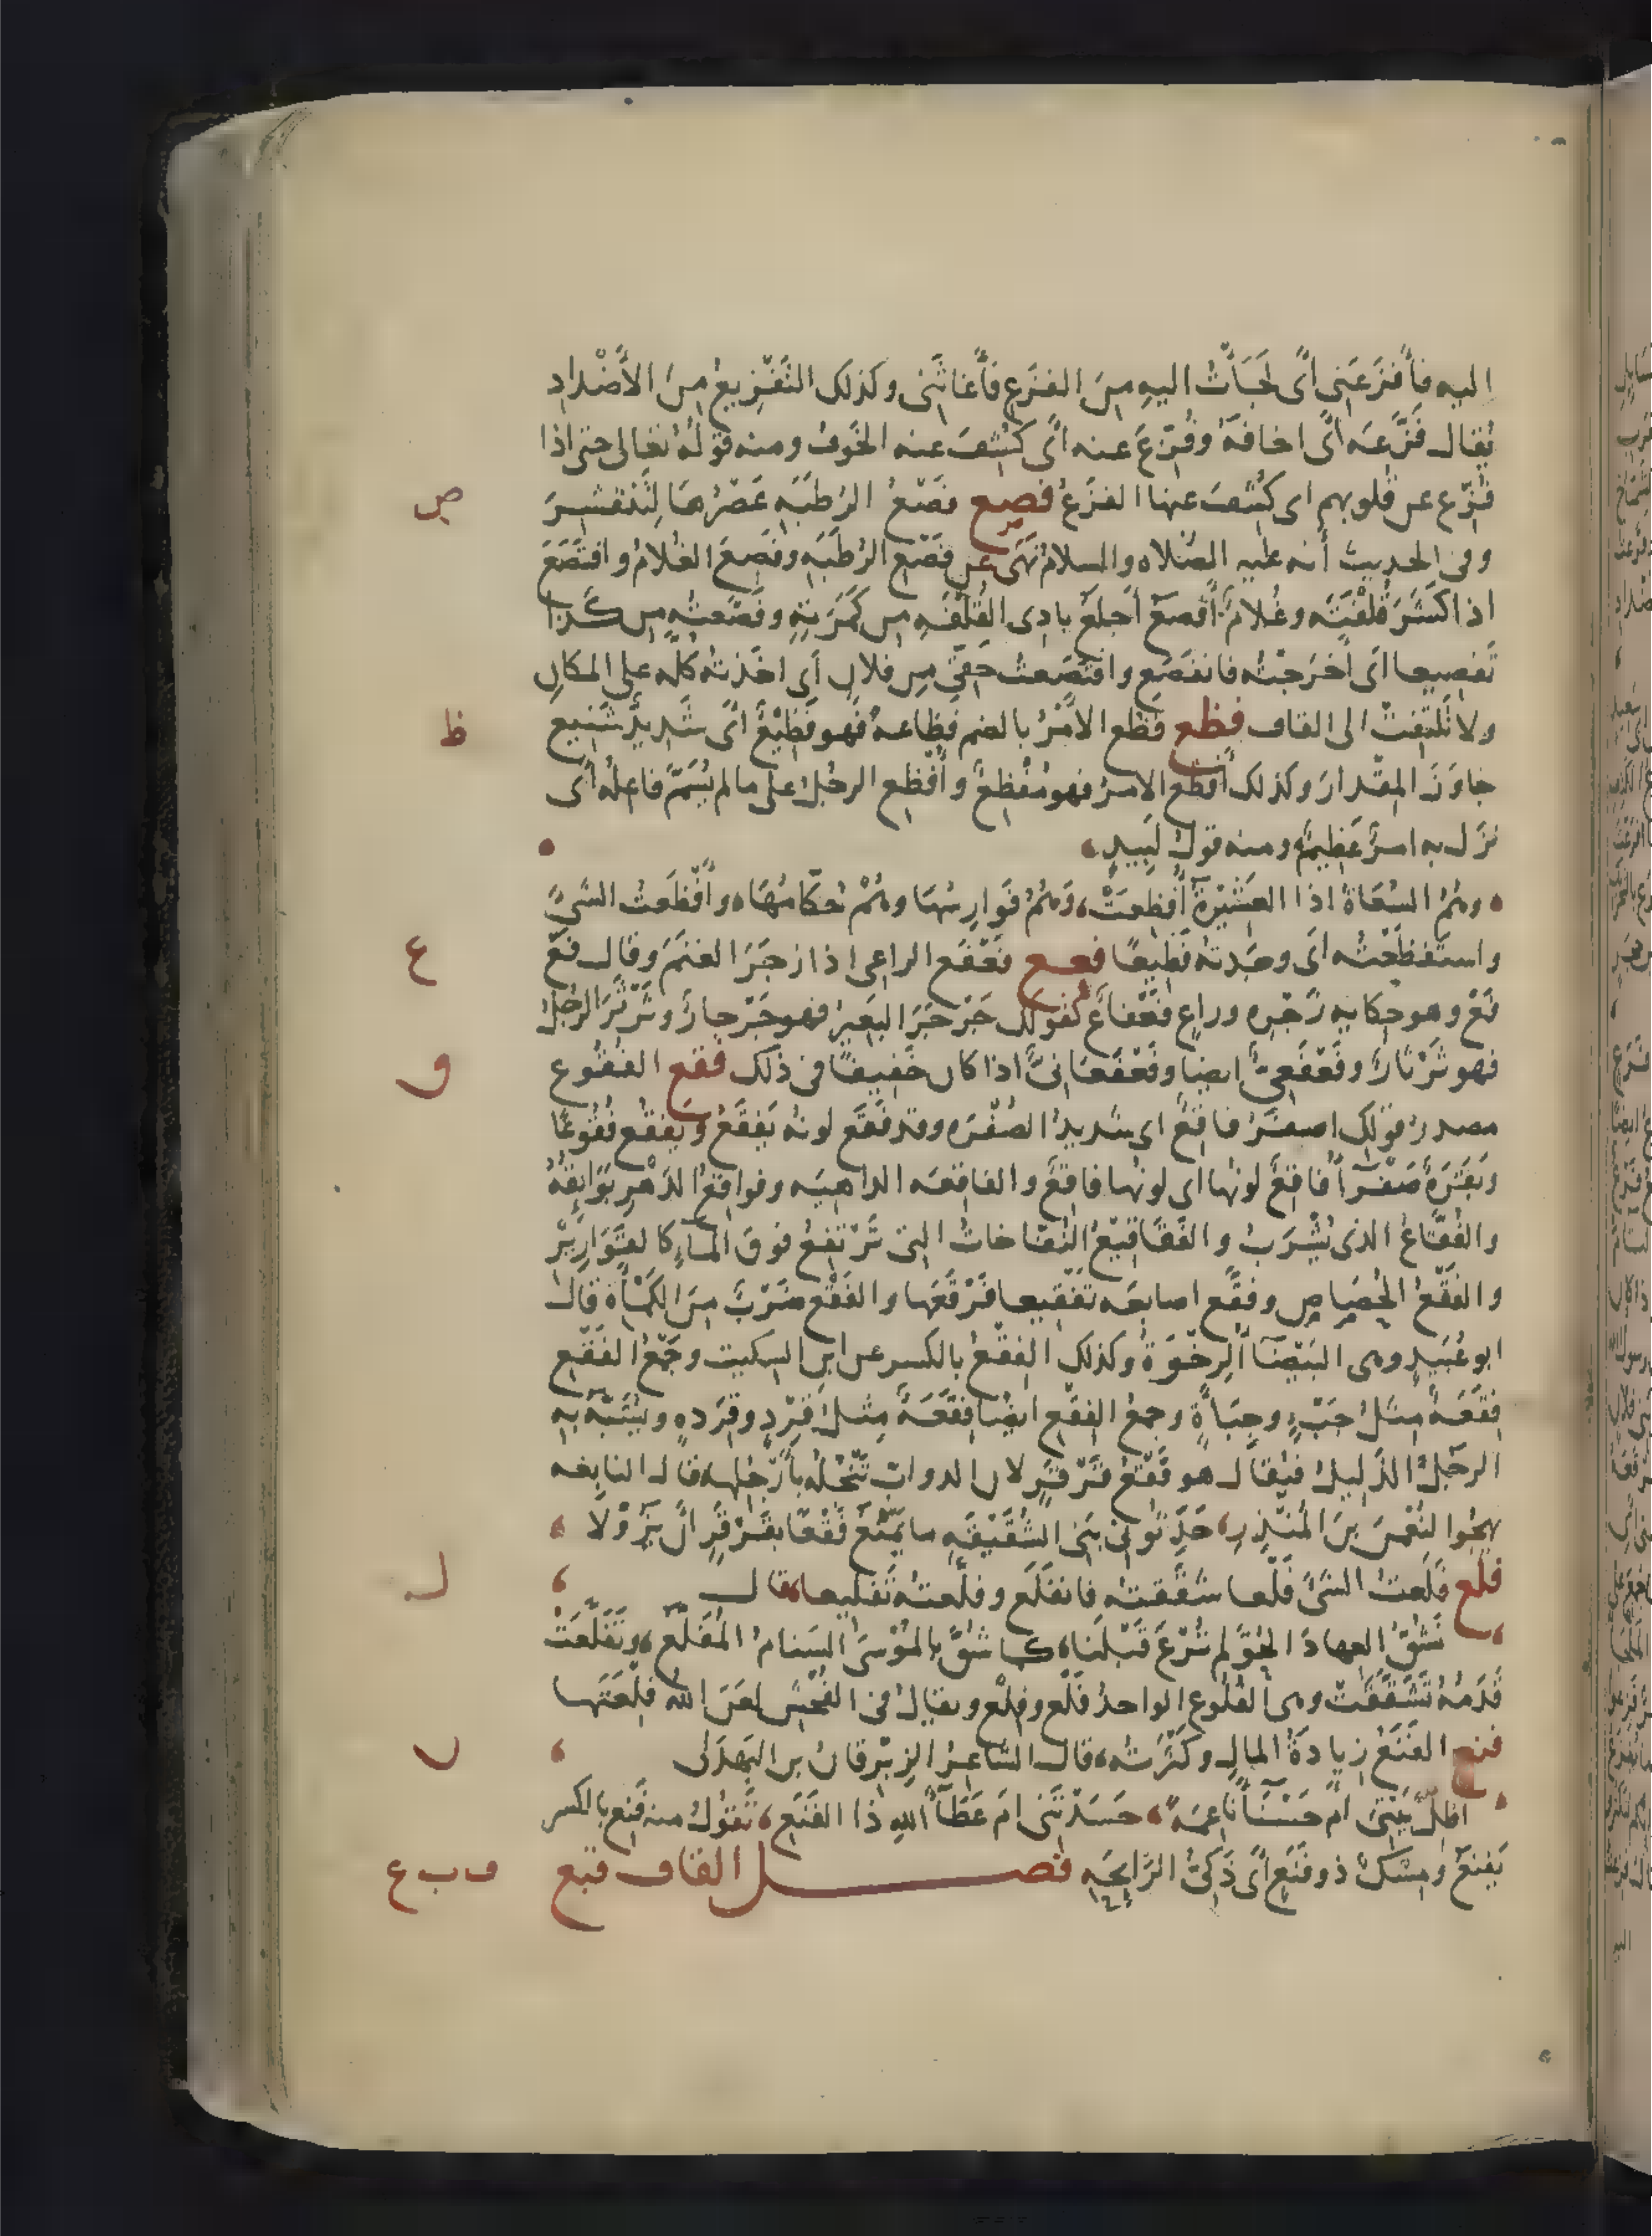 اليه فأَفْزَعَنى أىْ لَجَأتُ اليهِ مِنَ الفزَعِ فأَغاثَنى وكذلك التَّفْزِيعُ مِنَ الأَضْدادِ
يُقال فَزَّعَه أىْ اخافَهُ وفُزِّعَ عنه أىْ كُشِفَ عنه الخَوفُ ومنه قولُهُ تعَالى حتى اذا
فُزِّع عن قلوبهم اى كُشِفَ عنها الفزَعُ فصع فَصْعُ الرُطَبَهِ عَصْرُهَا لِتَنْقشِرَ
ص
وفى الحديث أنه عليه الصَّلاه والسلامُ نَهَى عن فَصْعِ الرُّطَبَهِ وفَصَعَ الغلامُ وافتَصَعَ
اذا كَشَرَ قُلْفَتَه وغُلامٌ أَفْصَعُ أجلَعُ بادِى القُلْفَهِ من كَمَرَتِهِ وفصَّعتُه من كذا
تَفصِيعا أى أخْرَجْتُه فانفَصَعَ وافتَصَعتُ حَقّى مِن فلان أى اخَذتُه كلّه على المكانِ
ولا تَلتفِتْ الى القاف فظع فَظُع الأمْرُ بالضم فظاعهً فهو فَظِيْعٌ أىْ شَديدٌ شَنيع
ظ
جاوَزَ المِقْدارَ وكذلك أفظعَ الامرُ فهو مُفْظِعٌ وأُفْظِعَ الرجُلُ على ما لم يُسَمَّ فاعِلُه أى
نزَل به امرٌ عَظِيمٌ ومنه قولُ لَبِيدٍ،
وهُمُ السُّعَاةُ اذا العَشيْرَةُ أُفظِعَتْ، وَهُمُ فَوارِسُهَا وهُمْ حُكّامُهَا، وأَفْظَعتُ الشَّىءَ
واستَفظَعْتُه أى وجَدتُه فظِيعًا فعع فَعْفَعَ الراعى اذا زجَرَ الغنَمَ وقال فَعْ
ع
فَعْ وهو حِكايه زَجْرِه وراعٍ فَعْفاعٌ كقولك جَرْجَرَ البَعِيرُ فهو جَرْجارٌ وثَرْثَرَ الرجُلُ
فهو ثَرْثارٌ وفَعْفَعِىٌّ ايضًا وفَعْفَعَانىٌّ اذا كان خَفِيفًا فى ذلك فقع الفُقُوع
ق
مصدرُ قولك اصفَرُ فاقِعٌ اى شديدُ الصُفْرَه وقد فقَع لونُه يَفقَعُ ويَفقُع فُقُوعًا
وبَقَرَهٌ صَفْرَآءُ فاقِعٌ لونُها اى لونُها فاقِعٌ والفاقِعَه الداهيَه وفواقعُ الدَهْرِ بَوَايِقُهُ
والفُقّاعُ الذى يُشْرَبُ والفَقَاقيْعُ النُّفّاخاتُ التى تَرْتَفِعُ فوقَ المآءِ كالقَوَارِيْر
والفَقْعُ الحُصَاصُ وفقَّع اصابعَه تَفْقيعا فَرْقَعَها والفَقْع ضَرْبٌ مِنَ الكَمْأَةِ قال
ابو عُبَيدٍ وهى البَيْضَآءُ الرِخْوَةُ وكذلك الفِقْعُ بالكسر عن ابن السكيت وجَمْعُ الفَقْعِ
فِقَعَهٌ مثلُ جَبْءٍ وجِبَأَةٍ وجمعُ الفِقْع ايضًا فِقَعَهٌ مِثلُ قِرْدٍ وقِرَدهٍ ويُشَبَّه بهِ
الرجُلُ الذَّلِيلُ فيُقال هو فَقْعُ قَرْقَرٍ لان الدوابّ تَنْجُلُه بأرْجُلِها، قال النابغه
يهجُوا النُعْمنَ بنَ المُنذِرِ، حَدِّثُونى بَنى الشُقَيْقَهِ ما يَمْنَعُ فَقْعًا بقَرْقَرٍ أنْ يَزُوْلَا
فلع فَلَعتُ الشَىءَ فَلْعا شقَقتُه فانفَلَع وفلّعتُه تَفليعا، قال
ل
نَشُقُّ العِهادَ الحُوَّ لم تُرْعَ قَبْلَنا، كما شُقَّ بالمُوْسَى السَنامُ المُفَلَّعُ، وتَفَلَّعَتْ
قَدَمُهُ تَشَقَّقَتْ وهى الفُلُوع الواحدُ فَلْعٌ وفِلْعٌ ويقالُ فى الفُحْش لعَنَ الله فِلْعَتَها
فنع الفَنَعُ زيادَةُ المالِ وكَثْرَتُه، قال الشاعرُ الزِبْرقانُ بن البَهدَلى
ن
اظِلَّ بَيْتِى امْ حَسْنَآءَ ناعِمَهً، حسَدْتَنى امَ عَطَآءَ اللهِ ذا الفَنَعِ، تَقولُ منه فَنِعَ بالكسر
يَفنَعُ ومِسْكٌ ذو فَنَعٍ أىْ ذَكِىُّ الرَّايِحَهِ فصل القاف قبع
ق ب ع